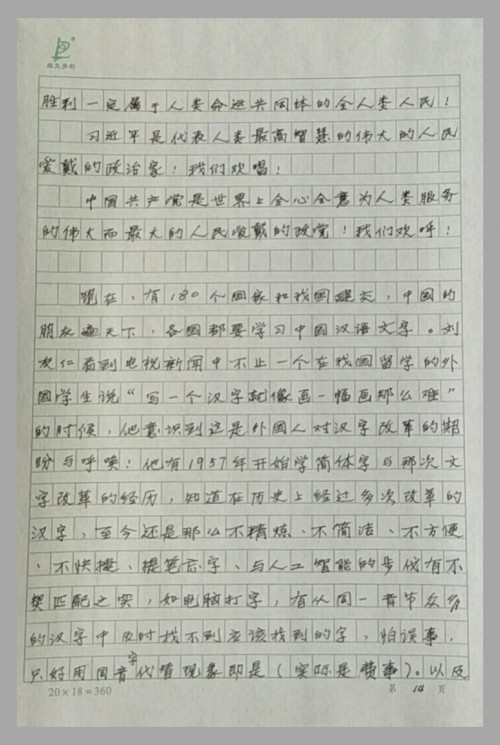 胜利一定属于人类命运共同体的全人类人民！
习近平是代表人类最高智慧的伟大的人民
爱戴的政治家！我们欢唱！
中国共产党是世界上全心全意为人类服务
的伟大而最大的人民爱戴的政党！我们欢呼！
现在，有180个国家和我国建交，中国的
朋友遍天下，各国都要学习中国汉语文字。刘
友仁看到电视新闻中不止一个在我国留学的外
国学生说“写一个汉字就像画一幅画那么难”
的时候，他意识到这是外国人对汉字改革的期
盼与呼唤！他有1957年开始学简体字与那次文
字改革的经历，知道在历史上经过多次改革的
汉字，至今还是那么不精炼、不简洁、不方便
、不快捷、提笔忘字、与人工智能的步伐有不
契匹配之实，如电脑打字，有从同一音节众多
的汉字中及时找不到应该找到的字，怕误事，
只好用同音字代替现象即是（实际是费事）。以及
20×18=360
第 14 页